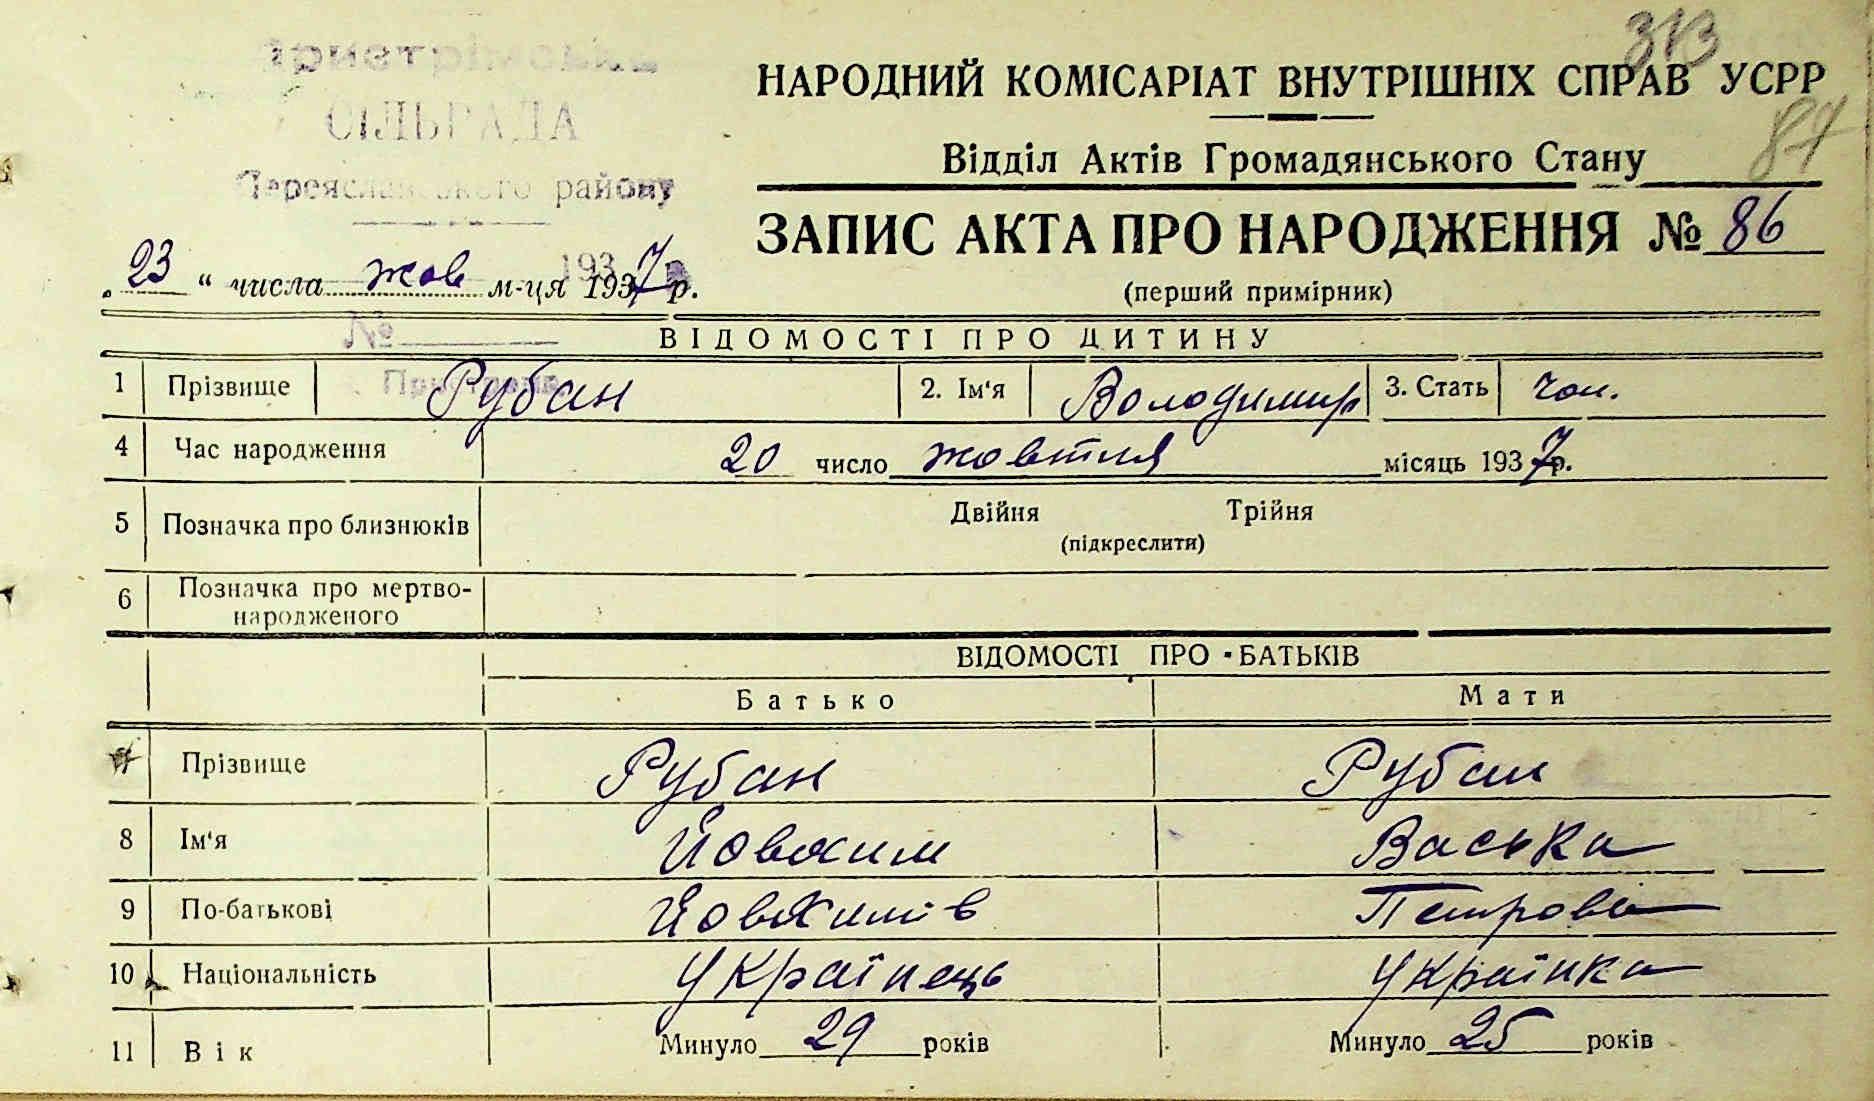 313
НАРОДНИЙ КОМІСАРІАТ ВНУТРІШНІХ СПРАВ УСРР
87
Відділ Актів Громадянського Стану
СІЛЬРАДА
Переяславського району
ЗАПИС АКТА ПРО НАРОДЖЕННЯ № 86
(перший примірник)
„23“ числа жов м-ця 1937 р.
193
№
ВІДОМОСТІ ПРО ДИТИНУ
1 Прізвище Рубан 2. Ім‘я Володимир 3. Стать чол.
4 Час народження 20 число жовтня місяць 1937р.
5 Позначка про близнюків Двійня Трійня
(підкреслити)
6 Позначка про мертво-
народженого
ВІДОМОСТІ ПРО БАТЬКІВ
Батько Мати
7 Прізвище Рубан Рубан
8 Ім‘я Йовхим Васька
9 По-батькові Йовхимів Петрові
10 Національність Українець Українка
11 Вік Минуло 29 років Минуло 25 років